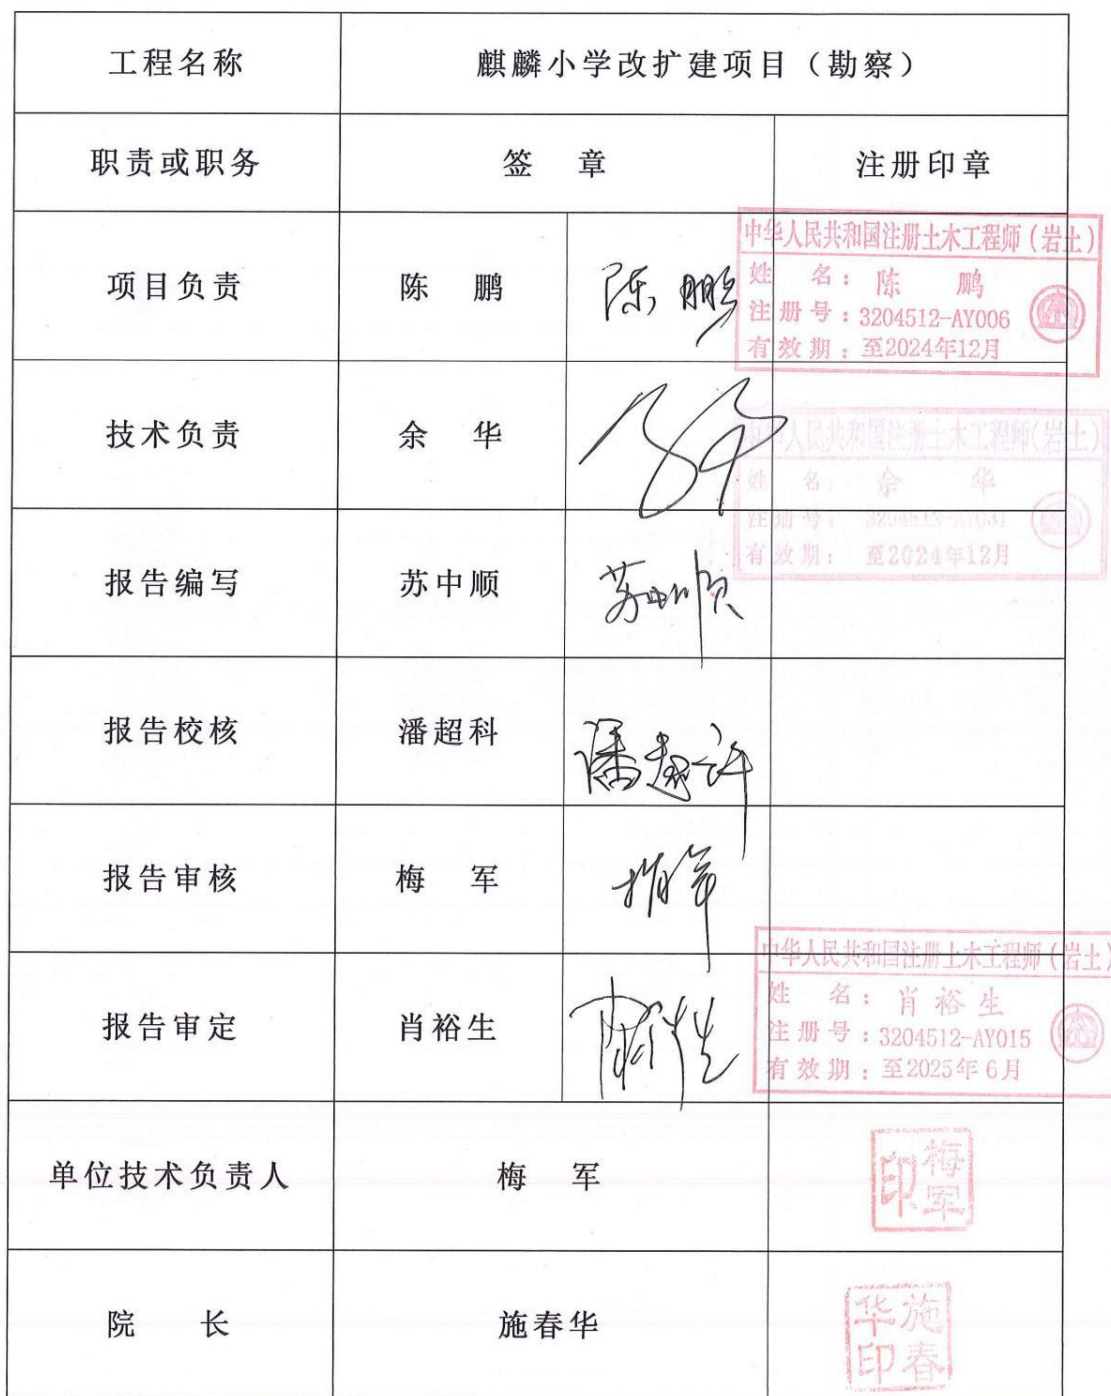 工程名称 麒麟小学改扩建项目（勘察）
职责或职务 签 章 注册印章
项目负责 陈 鹏 陈鹏
中华人民共和国注册土木工程师（岩土）
姓 名：陈 鹏
注册号：3204512-AY006
有效期：至2024年12月
技术负责 余 华
中华人民共和国注册土木工程师（岩土）
姓 名：余 华
注册号：3204512-AY031
有效期：至2024年12月
报告编写 苏中顺 苏中顺
报告校核 潘超科
报告审核 梅 军 梅军
报告审定 肖裕生
中华人民共和国注册土木工程师（岩土）
姓 名：肖裕生
注册号：3204512-AY015
有效期：至2025年6月
单位技术负责人 梅 军 梅军印
院 长 施春华 施春华印